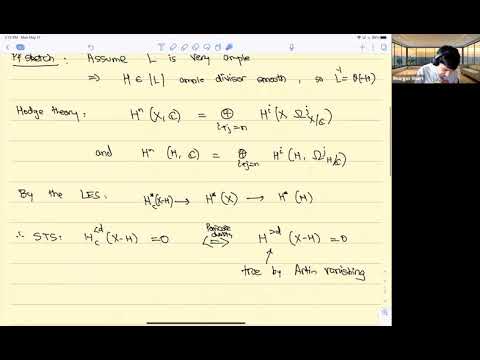 2:15 PM Mon May 17
Pf sketch : Assume L is very ample
⇒ H ∈ |L| ample divisor smooth, so L⁻¹ = O(-H)
Hodge theory : Hⁿ (X, ℂ) = ⊕_{i+j=n} Hⁱ(X Ωʲ_{X/ℂ})
and Hⁿ (H, ℂ) = ⊕_{i+j=n} Hⁱ (H, Ωʲ_{H/ℂ})
By the LES: H*_c(X-H) → H*(X) → H*(H)
∴ STS: H_c^{<d} (X-H) = 0 ⟺ Poincaré duality H^{>d} (X-H) = 0
true by Artin vanishing